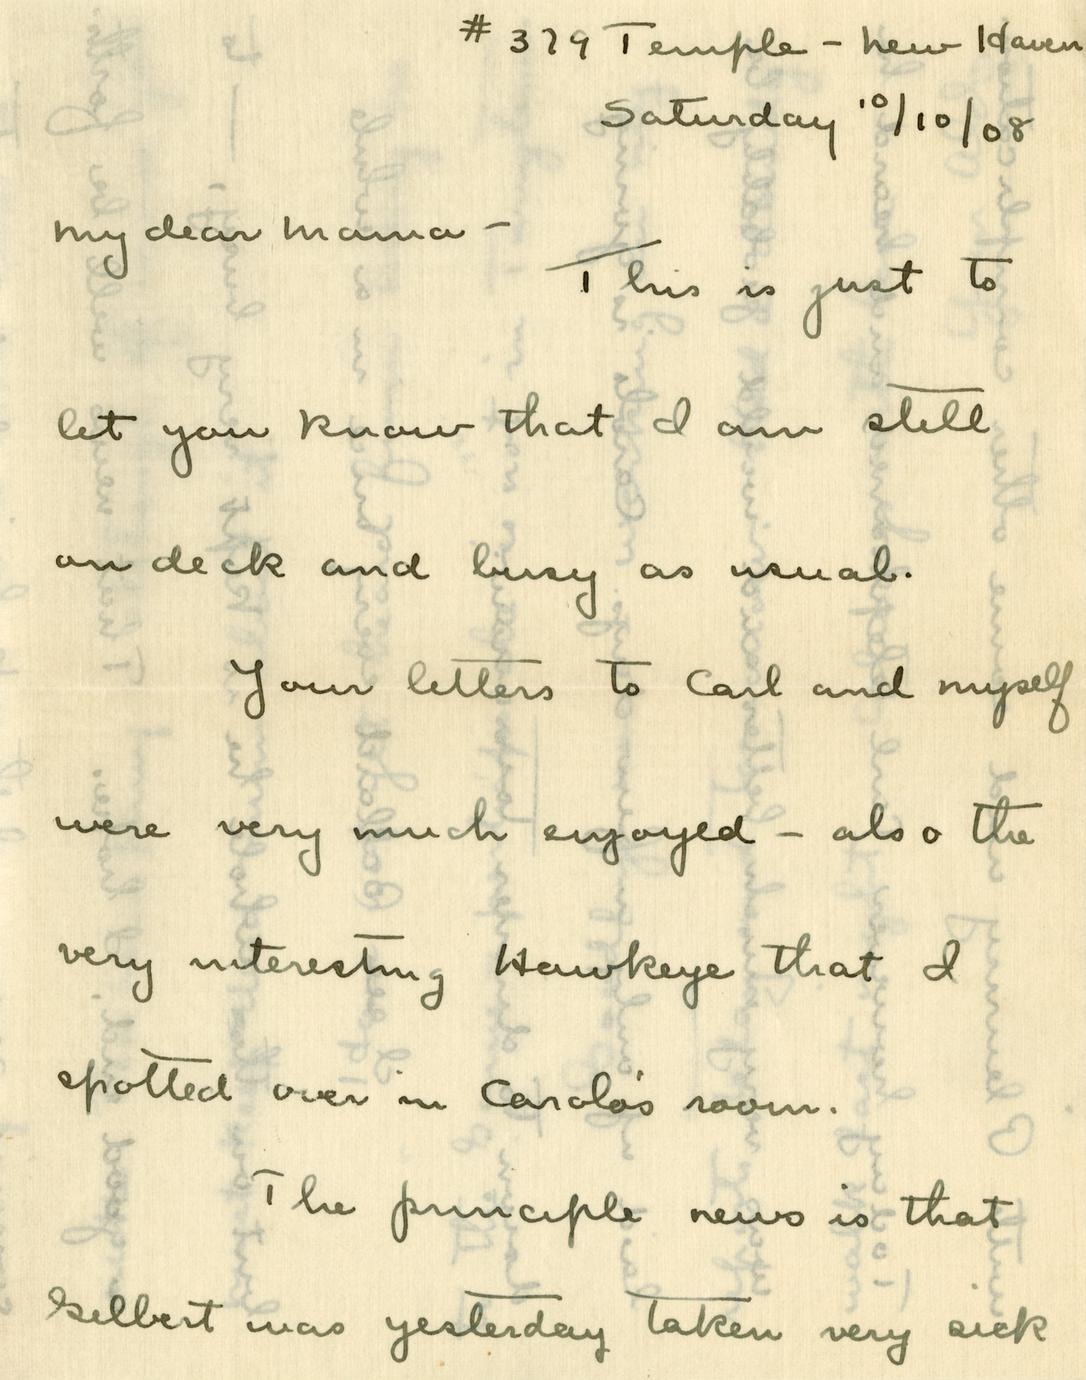 # 379 Temple - New Haven
Saturday 10/10/08
My dear Mama -
This is just to
let you know that I am still
on deck and busy as usual.
Your letters to Carl and myself
were very much enjoyed - also the
very interesting Hawkeye that I
spotted over in Carolo's room.
The principle news is that
Gilbert was yesterday taken very sick